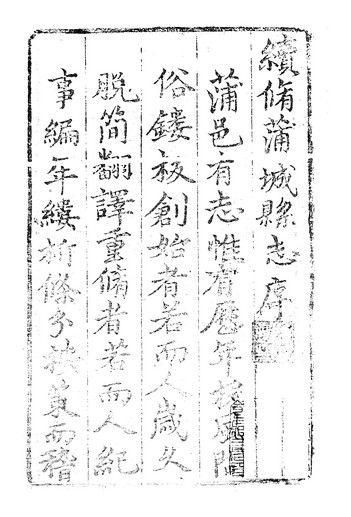 續脩蒲城縣志序
蒲邑有志惟有歷年採風問
俗鏤板創始者若而人歲久
脱簡翻譯重脩者若而人紀
事編年縷析條分而稽